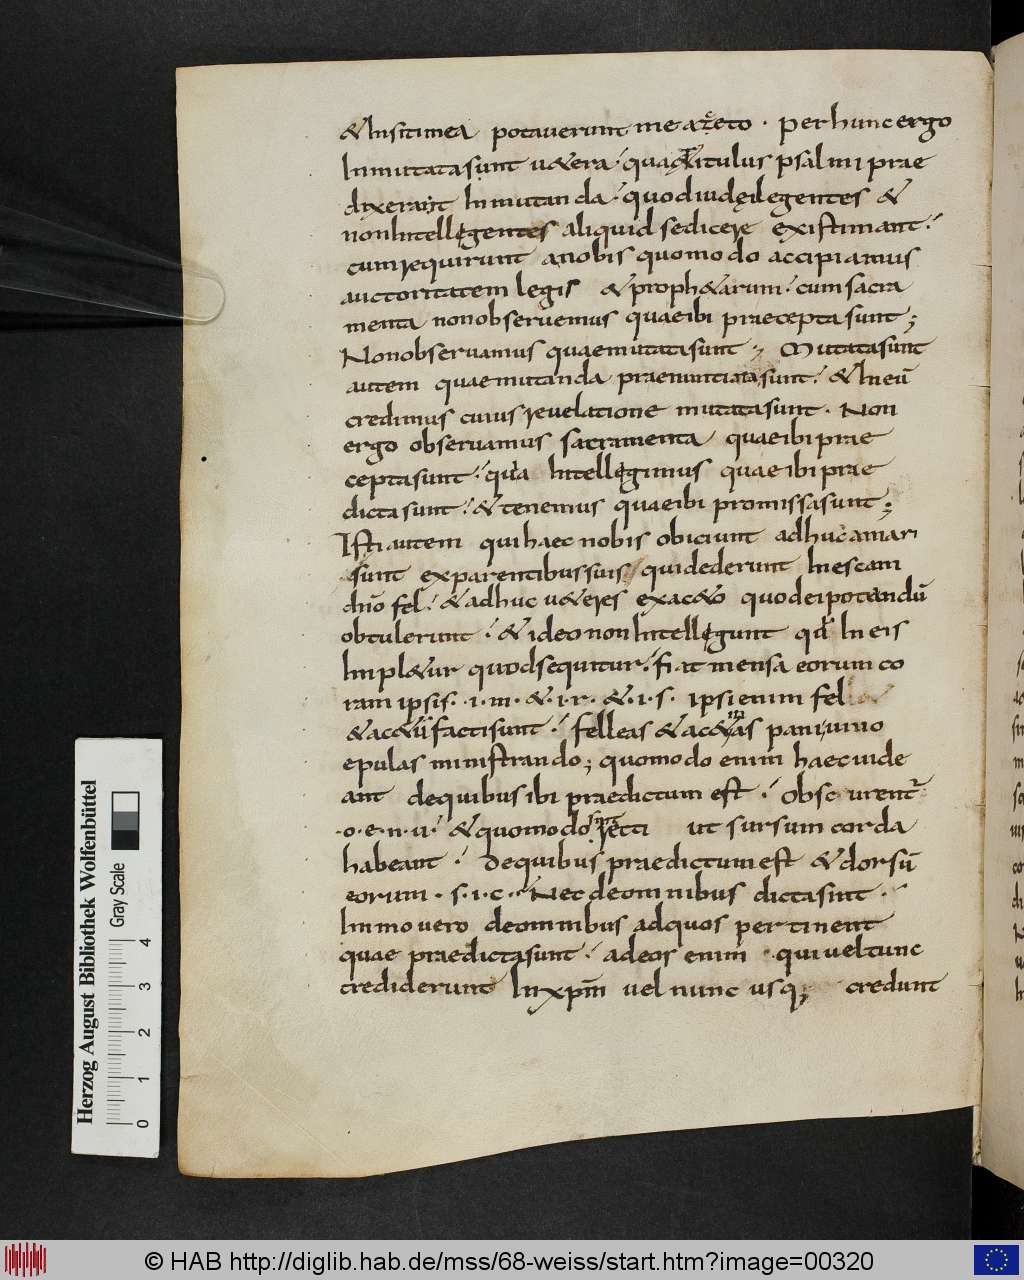 & insitimea potaverunt me aceto · per hunc ergo
Inmutata sunt u&era · qua titulus psalmi prae
dixerant Inmutanda · quod iudęi legentes &
non Intellegentes aliquid se dicere existimant ·
cum requirunt a nobis quomodo accipiamus
auctoritatem legis & proph&arum · cum sacra
menta non obseruemus quae ibi praecepta sunt ;
Non obseruamus quae mutata sunt ; Mutata sunt
autem quae mutanda praenuntiata sunt · & In eū
credimus cuius reuelatione mutata sunt · Non
ergo obseruamus sacramenta quae ibi prae
cepta sunt · quia Intellęgimus quae ibi prae
dicta sunt · & tenemus quae ibi promissa sunt ;
Isti autem qui haec nobis obiciunt adhuc amari
sunt ex parentibus suis qui dederunt In escam
dn̄o fel · & adhuc u&eres ex ac&o quod ei potandū
obtulerunt · & ideo non Intellęgunt qđ In eis
Impl&ur quod sequitur · fiat mensa eorum co
ram ipsis · i · m · & · i · r · & · i · s · ipsi enim fel
& ac&ū facti sunt · felleas & ac&as pani uiuo
epulas ministrando ; quomodo enim haec uide
ant de quibus ibi praedictum est · Obscurent̄
· o · e · n · u · & quomodo sint recti ut sursum corda
habeant · de quibus praedictum est & dorsū
eorum · s · i · c · Nec de omnibus dicta sint ·
Immo uero de omnibus ad quos pertinent
quae praedicta sunt · ad eos enim · qui uel tunc
crediderunt In xpm̄ uel nunc usq; credunt
Herzog August Bibliothek Wolfenbüttel
Gray Scale
0 1 2 3 4
© HAB http://diglib.hab.de/mss/68-weiss/start.htm?image=00320